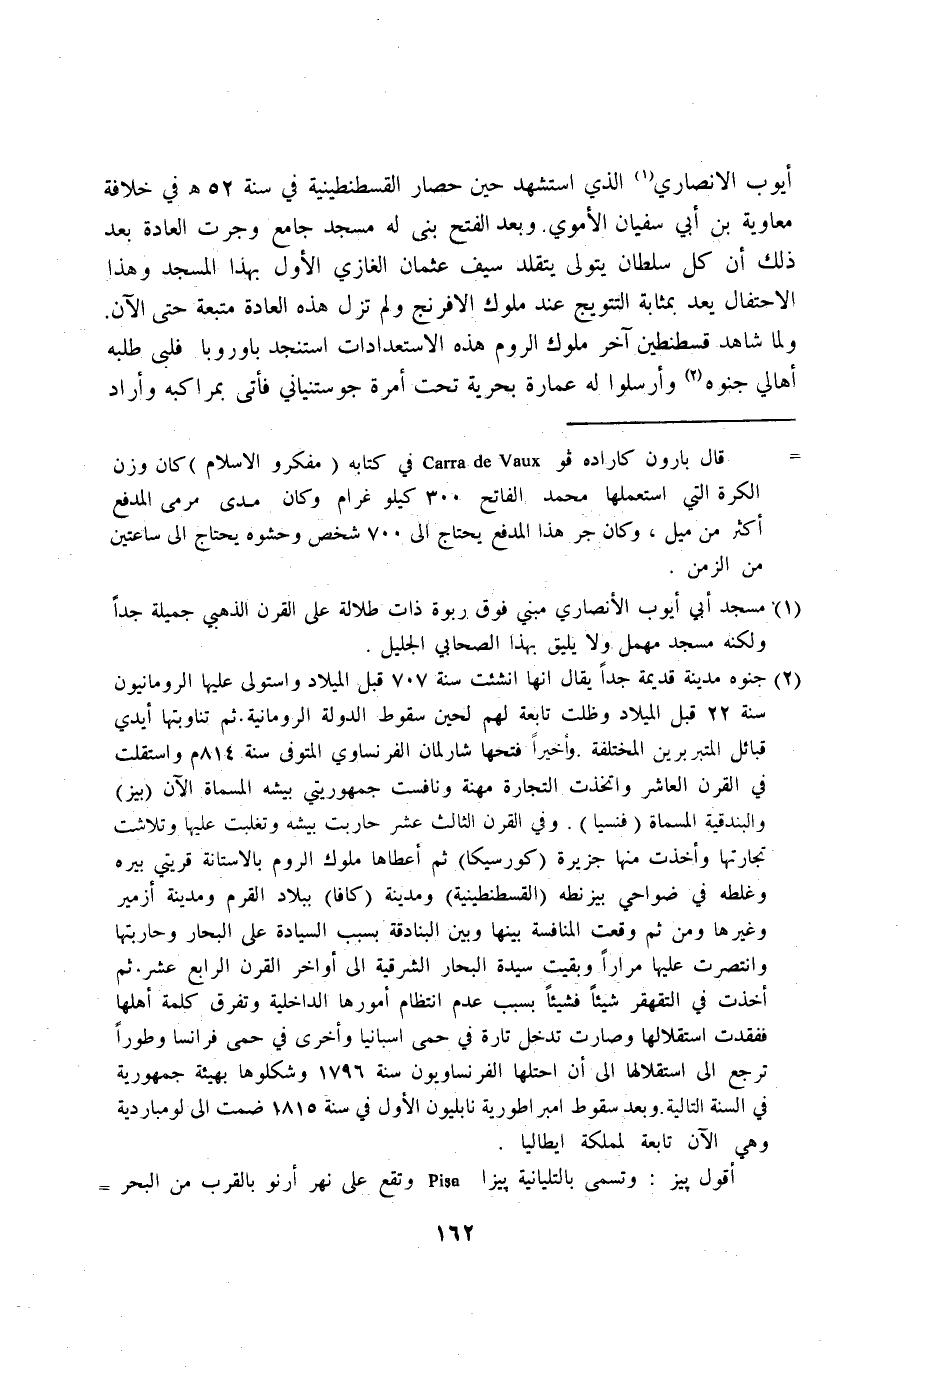 أيوب الانصاري(١) الذي استشهد حين حصار القسطنطينية في سنة ٥٢ هـ في خلافة
معاوية بن أبي سفيان الأموي. وبعد الفتح بنى له مسجد جامع وجرت العادة بعد
ذلك أن كل سلطان يتولى يتقلد سيف عثمان الغازي الأول بهذا المسجد وهذا
الاحتفال يعد بمثابة التتويج عند ملوك الافرنج ولم تزل هذه العادة متبعة حتى الآن.
ولما شاهد قسطنطين آخر ملوك الروم هذه الاستعدادات استنجد باوروبا فلبى طلبه
أهالي جنوه(٢) وأرسلوا له عمارة بحرية تحت أمرة جوستنياني فأتى بمراكبه وأراد
= قال بارون كاراده ڤو Carra de Vaux في كتابه ( مفكرو الاسلام ) كان وزن
الكرة التي استعملها محمد الفاتح ٣٠٠ كيلو غرام وكان مدى مرمى المدفع
أكثر من ميل ، وكان جر هذا المدفع يحتاج الى ٧٠٠ شخص وحشوه يحتاج الى ساعتين
من الزمن .
(١) مسجد أبي أيوب الأنصاري مبني فوق ربوة ذات طلالة على القرن الذهبي جميلة جداً
ولكنه مسجد مهمل ولا يليق بهذا الصحابي الجليل .
(٢) جنوه مدينة قديمة جداً يقال انها انشئت سنة ٧٠٧ قبل الميلاد واستولى عليها الرومانيون
سنة ٢٢ قبل الميلاد وظلت تابعة لهم لحين سقوط الدولة الرومانية.ثم تناوبتها أيدي
قبائل المتبربرين المختلفة .وأخيراً فتحها شارلمان الفرنساوي المتوفى سنة ٨١٤م واستقلت
في القرن العاشر واتخذت التجارة مهنة ونافست جمهوريتي بيشه المسماة الآن (بيز)
والبندقية المسماة ( فنسيا ) . وفي القرن الثالث عشر حاربت بيشه وتغلبت عليها وتلاشت
تجارتها وأخذت منها جزيرة (كورسيكا) ثم أعطاها ملوك الروم بالاستانة قريتي بيره
وغلطه في ضواحي بيزنطه (القسطنطينية) ومدينة (كافا) ببلاد القرم ومدينة أزمير
وغيرها ومن ثم وقعت المنافسة بينها وبين البنادقة بسبب السيادة على البحار وحاربتها
وانتصرت عليها مراراً وبقيت سيدة البحار الشرقية الى أواخر القرن الرابع عشر.ثم
أخذت في التقهقر شيئاً فشيئاً بسبب عدم انتظام أمورها الداخلية وتفرق كلمة أهلها
ففقدت استقلالها وصارت تدخل تارة في حمى اسبانيا وأخرى في حمى فرانسا وطوراً
ترجع الى استقلالها الى أن احتلها الفرنساويون سنة ١٧٩٦ وشكلوها بهيئة جمهورية
في السنة التالية.وبعد سقوط امبراطورية نابليون الأول في سنة ١٨١٥ ضمت الى لومباردية
وهي الآن تابعة لمملكة ايطاليا .
أقول پيز : وتسمى بالتليانية پيزا Pisa وتقع على نهر أرنو بالقرب من البحر =
١٦٢